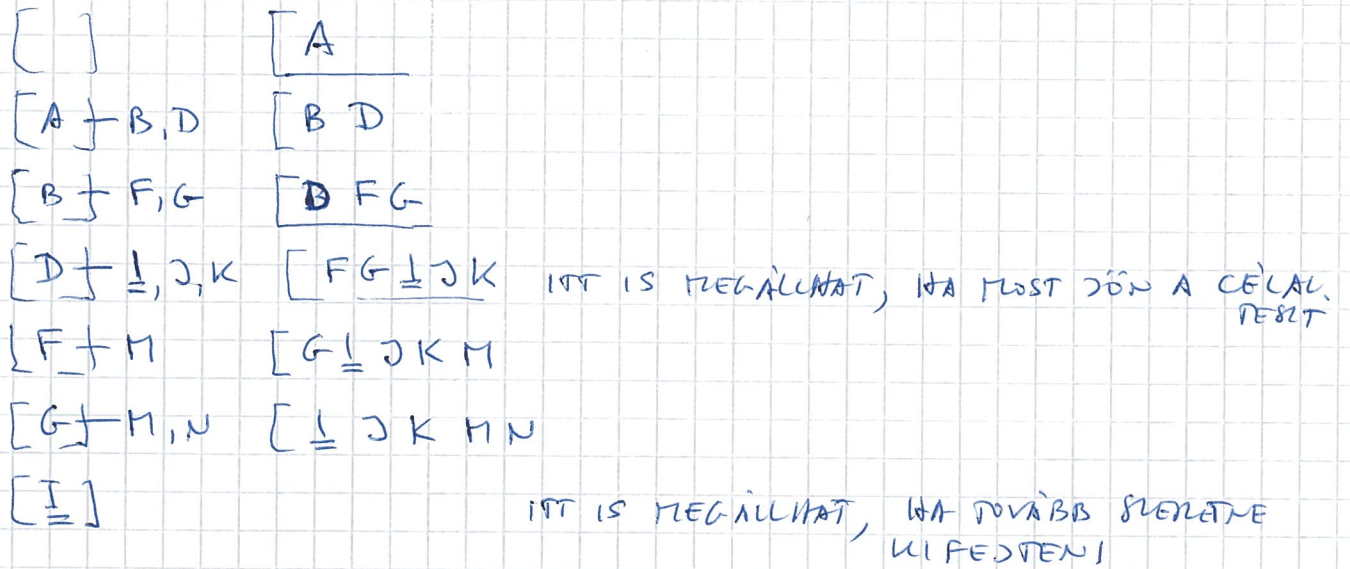 [ ] [ A
[ A ] B, D [ B D
[ B ] F, G [ D F G
[ D ] I, J, K [ F G I J K ITT IS MEGÁLLHAT, HA MOST JÖN A CÉLÁL.
TESZT
[ F ] M [ G I J K M
[ G ] M, N [ I J K M N
[ I ] ITT IS MEGÁLLHAT, HA TOVÁBB SZERETNE
KIFEJTENI